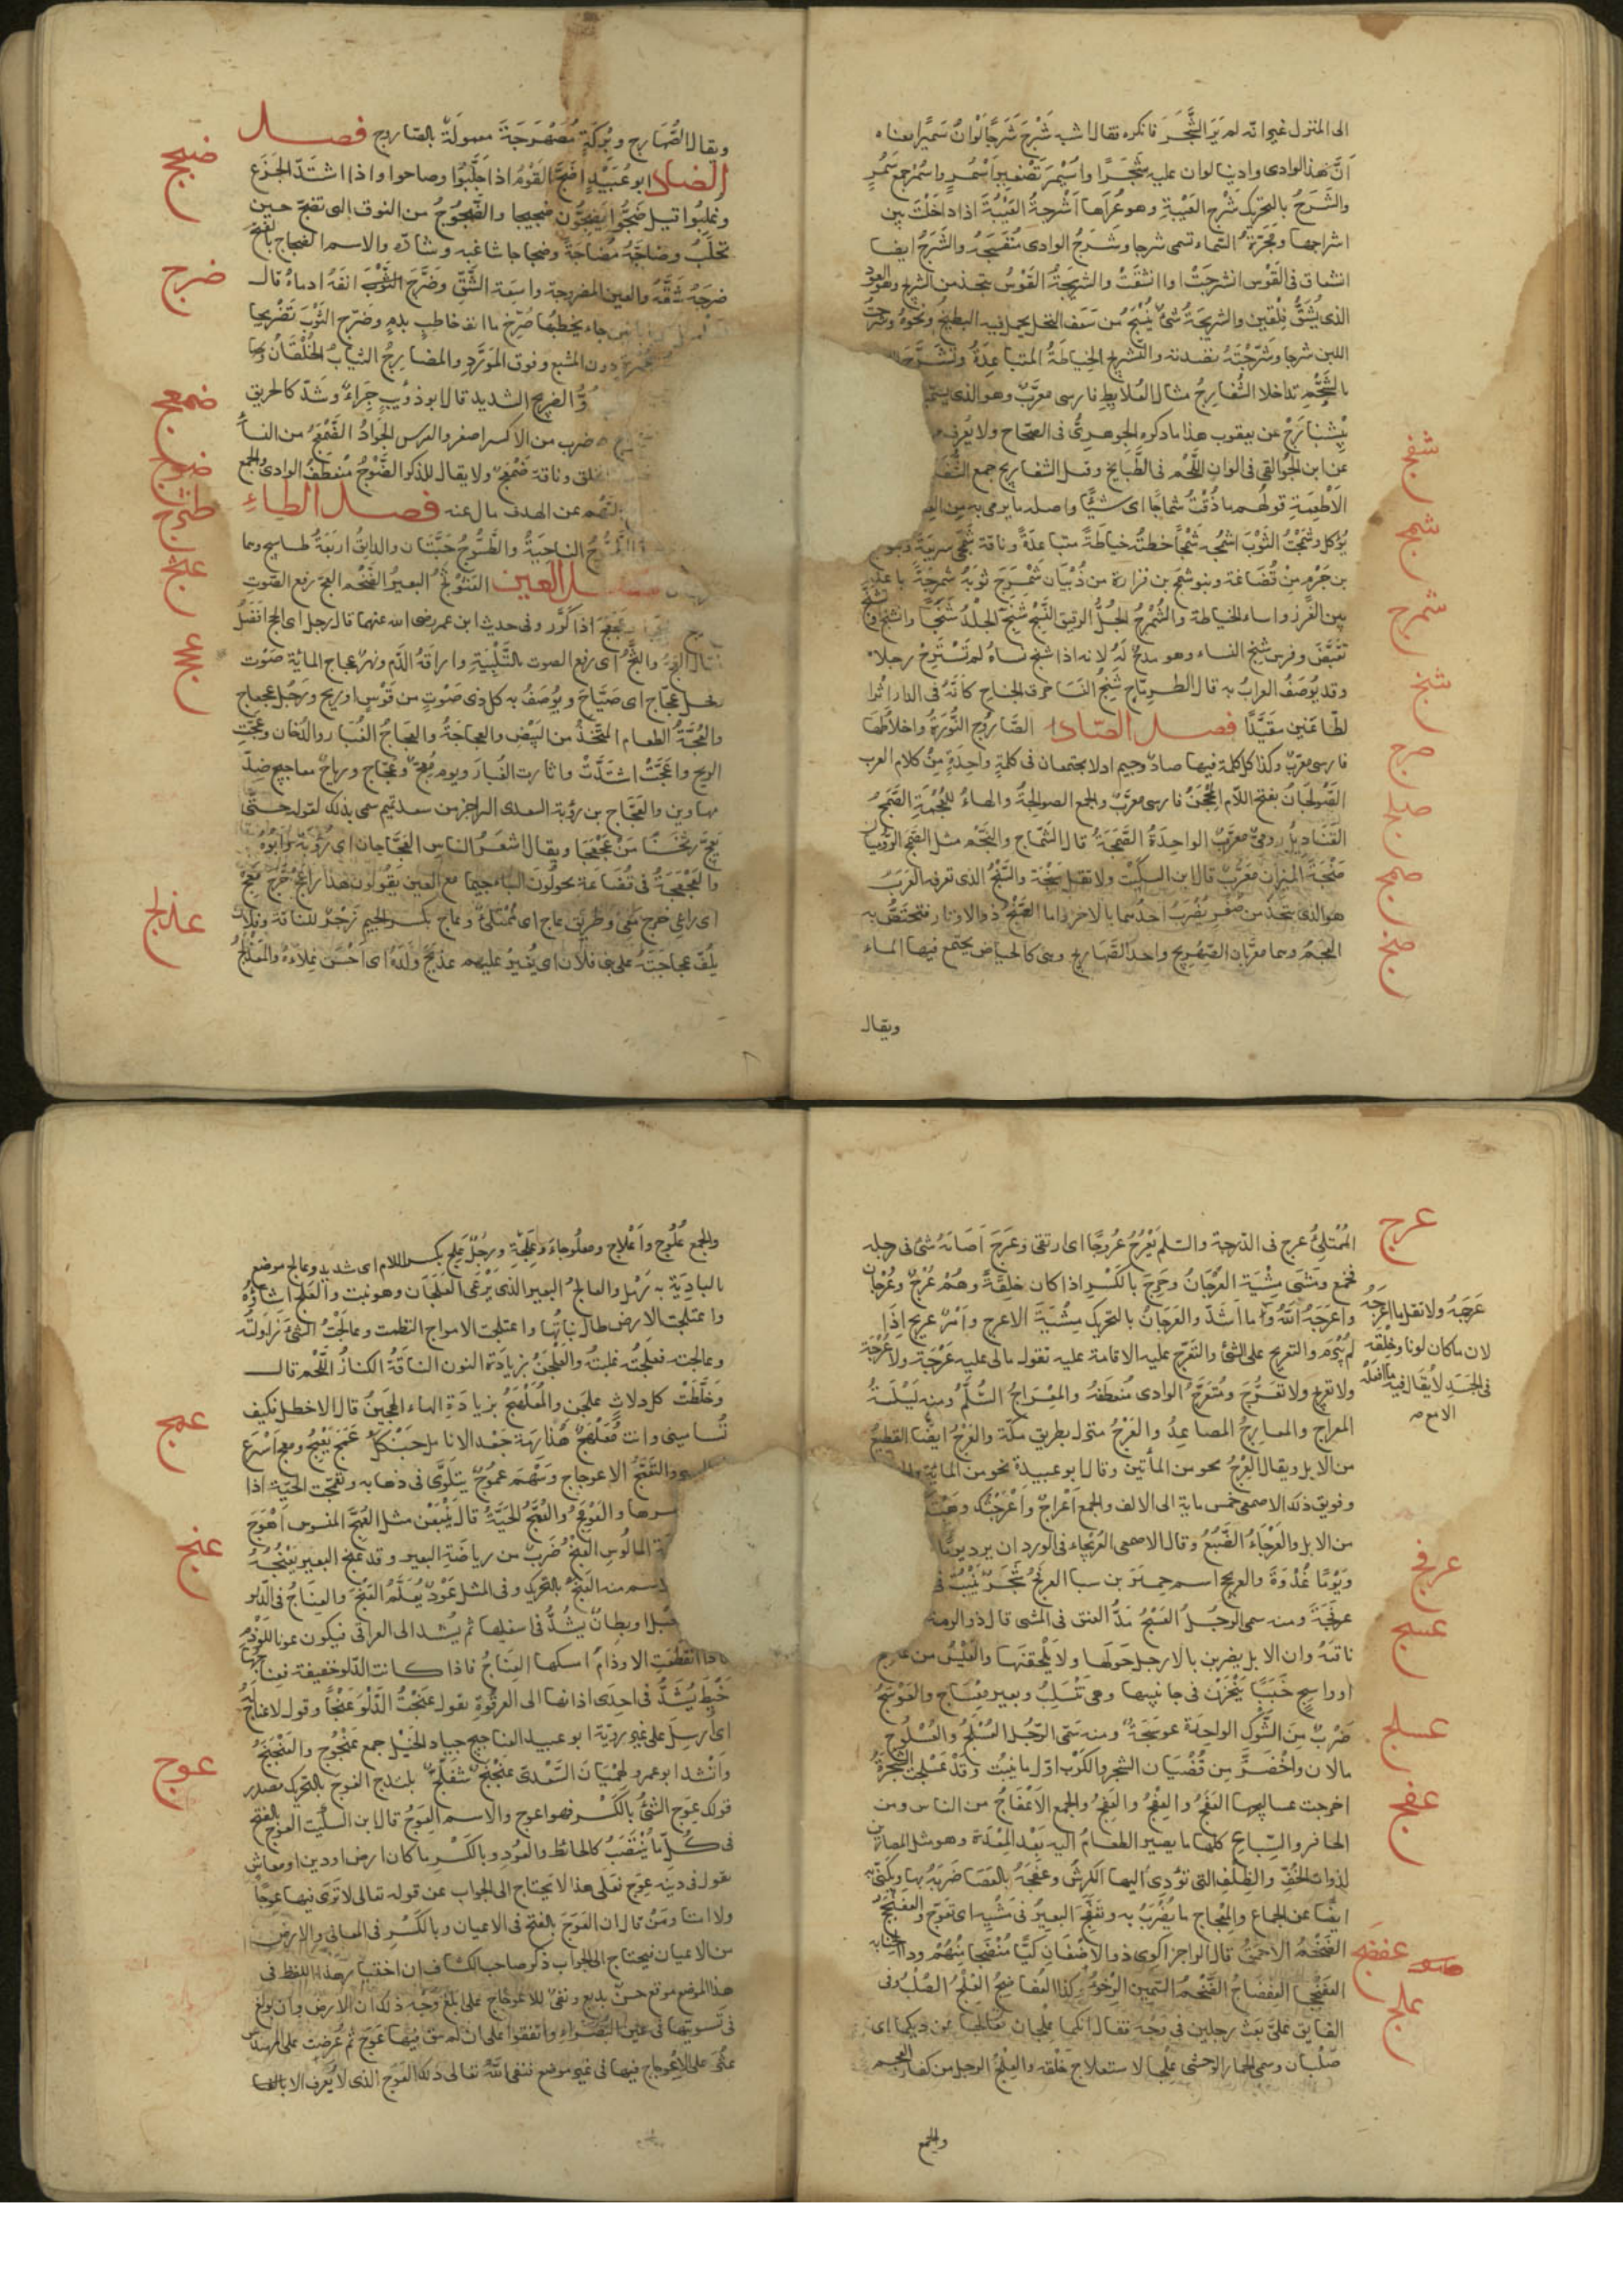 الى المنزل غير انه لم ير الشَّجَرَ فانكره فقال اشبه شَرْجٌ شَرْجًا لَوْ انَّ سُمَيْرًا معناه
انَّ هذا الوادى وادينا لو ان عليه شَجَرًا واُسَيْمِر تَصْغير اَسْمُر واَسْمُر جمع سَمُرٍ
والشَّرَجُ بالتحريك شَرَج العَيْبَةِ وهو عُرَاها اَشْرَجتُ العَيْبَةَ اذا داخَلْتَ بين
اشراجها ومَجَرَّة السَّماء تسمى شرجا وشَرَجُ الوادى مُنْفَسَحُه والشَّرَجُ ايضا
انشقاق فى القَوْس انشرجَتْ اى انْشَقَّتْ والشَّرِيجَةُ القَوْسُ يتخذ من الشريج وهو العود
الذى يُشَقُّ فِلْقَين والشريجَةُ شئٌ يُنْسَجُ من سَعَف النخل يحمل فيه البطيخ ونحوه وشَرَجْتُ
اللبن شرجا وشَرَّجْتُه نضدته والتَّشريج الخِياطَةُ المتباعِدَةُ وتَشَرَّجَ
بالشَّحْمِ تداخلا الشُّفَارِجُ مثال العُلابِطِ فارسى معرَّبٌ وهو الذى يسميه
بِيشْبَارَج عن يعقوب هذا ما ذكره الجوهرىُّ فى الصحاح ولا يعرف
عن ابن الجَوَالقى فى الوان اللَّحْم فى الطَّبايخ وقيل الشفاريج جمع
الاَطْعِمَةِ قولُهم ما ذُقْتُ شَماجًا اى شيئًا واصله ما يرمى به من
يؤكل وشَمَجْتُ الثَّوْبَ اشمُجُه شَمْجًا خطتُه خياطَةً متباعدَةً وناقة شَمَجَى سريعَةٌ وبنو
بن جَرْم مِنْ قُضَاعَة وبنو شمخ بن فزارة من ذُبْيَان شَمْرَجَ ثوبَهُ شَمْرَجَةً باعد
بين الغُرَز واساء الخياطة والشُّمْرُج الجُلُّ الرقيق النَّسْج شَنِجَ الجِلْدُ شَنَجًا وانْشَنَج
تقبَّضَ وفرس شَنِجُ النساء وهو مدحٌ لَهُ لانه اذا شنج نَسَاهُ لم تَسْتَرْخِ رجلاه
وقد يُوصَفُ الغرابُ به قال الطرِمَّاح شَنِجُ النَّسَا حرق الجناح كانَّهُ فى الدار اثرا
لظاعنين مقيَّد فصل الصّاد الصَّارُوج النُّورَةُ واخلاطُها
فارسى معرَّبٌ وكذا كل كلمة فيها صادٌ وجيم اذ لا يجتمعان فى كلمةٍ واحِدَةٍ مِنْ كلام العرب
الصَّوْلَجَانُ بفتح اللّام المِحْجَنُ فارسى معرَّبٌ والجمع الصوالجَةُ والهاءُ للعُجْمَةِ الصَّمَجُ
القَنَاديلُ رومىٌّ معرَّبٌ الواحِدَةُ الصَّمَجَةُ قال الشَّمَّاخ والنَّجْم مثل الصَّمَج الرُّوميات
صَنْجَةُ الميزان معَرَّبٌ قال ابن السكّيت ولا تقل سَنْجَة والصَّنْجُ الذى تعرفه العَرَبُ
هو الذى يتخذ من صُفْرٍ يُضْرَبُ احدهما بالاخر واما الصَّنْجُ ذو الاوتار فتختَصُّ به
العجم وهما معرّبان الصِّهْرِيج واحد الصَّهَاريج وهى كالحياض يجتمع فيها الماء
ويقال
شفرج
شمج
شمرج
شنج
صرج
صلج
صمج
صنج
ويقال الصُّهَارج وبُرْكَة مُصَهْرَجَة معمولَة بالصّاروج فصل
الضاد ابو عُبَيْدٍ اَضَجَّ القَوْمُ اذا جَلَّبُوا وصاحوا واذا اشتَدّ الجَزَع
وغُلِبُوا قيل ضَجُّوا يَضِجُّون ضجيجا والضَّجُوجُ من النوق التى تضج حين
تحْلَبُ وضاجَّهُ مُضَاجَّة وضجاجا شاغبه وشارّه والاسم الضجاج بالفتح
ضرجَهُ شَقَّهُ والعين المضروجة واسِعَة الشَّقِّ وضَرَّجَ الثَّوْبَ انفَهُ ادماهُ قال
جاء يخطبُها ضُرِّج ما انف خاطبٍ بدم وضَرَّج الثَّوْبَ تَضْريجا
دون المشبع وفوق المُورَّدِ والمضارِجُ الثيابُ الخُلْقَانُ
الضريج الشديد قال ابو ذؤيب جَرَاءٌ وشَدّ كالحريق
ضرب من الاكسية اصفر والفرس الجَوَادُ الضَّمْعَجُ من النساء
وناقة ضَمْعَجٌ ولا يقال للذكر الضَّوْجُ مُنعطفُ الوادى والجمع
السهم عن الهدف مال عنه فصل الطاء
الناحيَةُ والطَّسُّوجُ حَبَّتان والدانِق اربَعَةُ طساسيج وهما
فصل العين العَثَوْثَجُ البعيرُ الضَّخم العجُّ رفع الصوت
عَجْعَجَ اذا كَرَّر وفى حديث ابن عمر رضى الله عنهما قال رجل اى الحج افضَلُ
قال العَجُّ والثَّجُّ اى رفع الصوت بالتَّلْبِيَةِ واراقَةُ الدَّم ونهرٌ عجاج لمائِه صَوْت
نخل عجّاج اى صَيَّاح ويُوصَفُ به كل ذى صَوْتٍ من قَوْسٍ او ريح ورَجُل عجعاج
والعُجَّةُ الطعام المتَّخَذُ من البَيْض والعجاجَةُ والعَجاجُ الغُبَار والدُّخان وعجَّتِ
الريح واعَجَّتْ اشتَدَّتْ واثارت الغُبارَ ويوم مُعِجٌّ وعجّاج ورياحٌ معاجيج ضِدّ
مهاوين والعَجَّاج بن رؤبة السعدى الراجز من سعد تميم سمى بذلك لقوله حتَّى
يَعِجَّ ثَخَنًا مَنْ عَجْعَجَا ويقال اشعَرُ الناس العَجَّاجان اى رُؤبَة وابُوهُ
والعَجْعَجَةُ فى قُضَاعَة يحولُونَ الياء جيما مع العين يقولون هذا راعِجٌّ خَرَجَ مَعِجْ
اى راعى خرج معى وطريق عاج اى مُمْتَلئٌ وعاج بكسر الجيم زَجْرٌ للناقة وفلان
يلُفّ عجاجَتَهُ على بنى فلان اى يُغيرُ عليهم عذلجَ ولَدَهُ اى اَحْسَنَ غِذاءَهُ والمُعَذْلَجُ
ضجج
ضرج
ضمعج
ضوج
طثرج
عثج
عجج
عذلج
المُمْتَلِئُ عرج فى الدّرجة والسّلم يَعْرُجُ عُروجًا اى ارتقى وعَرَجَ اَصَابَهُ شئٌ فى رجله
فخمع ومَشَى مِشْيَة العَرْجَانُ وعَرِجَ بالكَسْرِ اذا كان خِلقَةً وهُمْ عُرْجٌ وعُرْجَان
واعرَجَهُ اللّه وما اَشَدَّ والعَرَجَانُ بالتحريك مِشْيَةُ الاعرج واَمْرٌ عريج اِذَا
لَمْ يُبْرَمْ والتعريج على الشئ والتَّعَرُّج عليه الاقامة عليه تقول مالى عليه عَرْجَةٌ ولا عُرْجَةٌ
ولا تعريج ولا تعَرُّجَ ومُنْعَرَجُ الوادى مُنعطَفُه والمِعْرَاجُ السُّلَّمُ ومنه لَيْلَةُ
المعراج والمعارِجُ المصاعِدُ والعَرْجُ منزل بطريق مكّة والعَرْجُ ايضًا القطيعُ
من الابل ويقال العَرْجُ نحو من المأتين وقال ابو عبيدة نحو من المائة
وفويق ذلك الاصمعى خمس ماية الى الالف والجمع اَعْرَاجٌ واعْرَجْتك وهَبْتُ
من الابل والعَرْجَاءُ الضَّبُعُ وقال الاصمعى العُرَيْجَاء فى الورد ان يرد يومًا
ويَوْمًا غُدْوَةً والعريج اسم حِمْيَر بن سبا العَرفَجُ شَجَرٌ يَنْبُتُ فى
عرفَجَة ومنه سمى الرجُلُ العَسْجُ مَدُّ العنق فى المشى قال ذو الرمة
ناقتَهُ وان الابل يضربن بالارجل حَولَها ولا يَلْحقنَها والعِيْسُ من عاسج
او واسِجٍ خَبَبًا يُنْحَزْن فى جانبيها وهى تَنْسَلِبُ وبعير مِعْسَاج والعَوْسَجُ
ضَرْبٌ مِنَ الشَّوك الواحِدَة عوسَجَةٌ ومنه سَمّى الرّجُل العُسْلُجُ والعُسْلُوج
مالان واخْضَرَّ مِن قُضْبَان الشجر والكَرْم اوّل ما ينبُت وقَدْ عَسْلَجت الشجرَةُ
اخرجت عساليجها العَفَجُ والعِفْجُ والعَفِجُ والجمع الاَعْفَاجُ من الناس ومن
الحافر والسِّباعِ كلها ما يصير الطعامُ اليه بَعْدَ المِعْدَة وهو مثل المصارين
لذوات الخُفّ والظِلفِ التى تؤدى اليها الكَرِشُ وعَفَجَهُ بالعَصَا ضَرَبَهُ بها ويُكنّى به
ايضًا عن الجماع والمِعْفَاج ما يُضْرَبُ به وتَعَفَّجَ البعيرُ فى مَشْيِه اى تعَوّجَ والعَفَنْجَجُ
الضَّخْمُ الاَحْمَقُ قال الراجز اكوى ذوى الاضْغَانِ كَيًّا مُنْضِجَا مِنْهُمْ وذا الخنابه
العَفَنْجَجَا العِفْضَاجُ الضَّخْمُ السَّمِين الرِّخْوُ وكذا العُفاضِجُ العِلْجُ الصُّلْبُ وفى
الفايق عَلىٌّ بَعَثَ رجلين فى وَجْهٍ فقال انكما علجان فعالجا عن دينكما اى
صُلْبان وسمى الحمارُ الوحشى عِلْجًا لاستعلاج خَلْقه والعِلْجُ الرجل من كفار العجم
والجمع
عرج
عرفج
عسج
عسلج
عفج
عفضج
علج
عَرَجَهُ ولا تقل ما اعْرَجَهُ
لان ما كان لونا وخِلْقَه
فى الجسد لا يُقال فيه ما افعَلَهُ
الا مع
والجمع عُلُوج واَعْلاج ومعلُوجاءُ وعِلَجَةٌ ورَجُلٌ عَلِج بكسر اللام اى شديد وعالج موضع
بالبادِيَة به رَمْل والعالجُ البعير الذى يَرْعَى العلجَان وهو نبت والعُلّج اشاؤُه
واعتلجت الارض طال نباتُها واعتلجت الامواج التطمت وعالَجْتُ الشئَ زَاوَلتُه
وعالجته فعَلجتُه غلبتُه والعَلْجَنُ بزيادَة النون الناقَةُ الكنازُ اللّحْم قال
وَخَلَّطَتْ كل دِلاثٍ علجَن والمُعَلْهَجُ بزيادَةِ الهاء الهَجِينُ قال الاخطل فكيف
تُسَامِينى وانت مُعَلْهَجٌ هُذَارِمَةٌ جَعْد الانامل حَنْكَلُ عَمَجَ يَعْمِجُ ومعج اَسْرَعَ
والتَّعَمُّج الاعوجاج وسَهْم عَمُوجٌ يتلَوَّى فى ذهابه وتعَمّجت الحَيّة اذا
والعَوْمَجُ والعُمَّجُ الحَيّةُ قال يَتْبَعْنَ مثل العُمَّج المنسوس اَهْوَجَ
المالُوسِ العَنْجُ ضَربٌ من رياضَةِ البعير وقد عنج البعير يَعْنُجُهُ
والاسم منه العَنَجُ بالتحريك وفى المثل عَوْدٌ يُعَلَّمُ العَنَجَ والعِنَاجُ فى الدّلو
حَبْل او بِطانٌ يُشَدُّ فى اسفلها ثم يُشد الى العراقى فيكون عونا للوَذَم
فاذا انقطعت الاوذامُ امسكها العِنَاجُ فاذا كانت الدّلو خفيفة فعِناجُها
خَيْطٌ يُشَدُّ فى احدى اذانها الى العرقُوةِ تقول عَنَجْتُ الدَّلْوَ عَنْجًا وقول لا عِناجَ لَهُ
اى اُرسِلَ على غير رويّة ابو عبيد العناجيج جياد الخَيْل جمع عُنْجُوج والعَنْجَجُ
وانْشد ابو عمرو لهِمْيَانَ السَّعْدى عَنَجْنَجٌ شَفَلَّجٌ بَلَنْدَج العِوَج بالتحريك مصدر
قولك عوج الشئُ بالكَسْر فهو اعوج والاسم العِوَجُ قال ابن السكّيت العوج بالفتح
فى كُلّ ما يَنْتَصِبُ كالحائط والعُودِ وبالكَسْر ما كان ارض او دين او معاش
نقول فى دينه عِوَج فعلى هذا لا يحتاج الى الجواب عن قوله تعالى لا تَرَى فيها عوجًا
ولا امتا ومَنْ قال ان العَوَج بالفتح فى الاعيان وبالكَسْر فى المعانى والارض
من الاعيان فيحتاج الى الجواب ذكر صاحب الكشاف ان اختصاصَ هذا اللفظ فى
هذا الموضع موقع حسنٌ بديع ونفىٌ للاعوجاج على ابلغ وجه ذلك ان الارض وان بولغ
فى تَسويتها فى عين البُصَراء واتفقوا على ان لم يبق فيها عوج ثم عُرِضت على المهندس
عثر على الاعوجاج فيها فى غير موضع فنفى اللّه تعالى ذلك العوج الذى لا يُعرف الا بالقياس
عمج
عنج
عوج